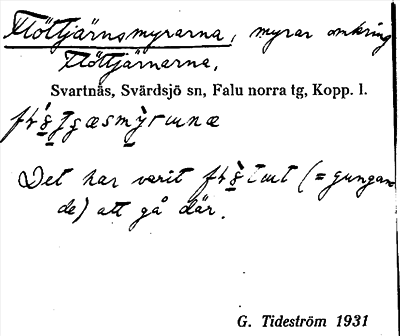 Flöttjärnsmyrarna, myrar omkring
Flöttjärnarna.
Svartnäs, Svärdsjö sn, Falu norra tg, Kopp. l.
Det har varit (= gungan-
de) att gå där.
G. Tideström 1931